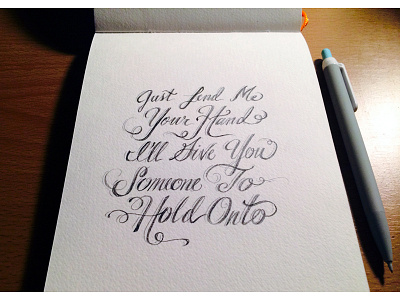 Just Lend Me
Your Hand
I'll Give You
Someone To
Hold Onto